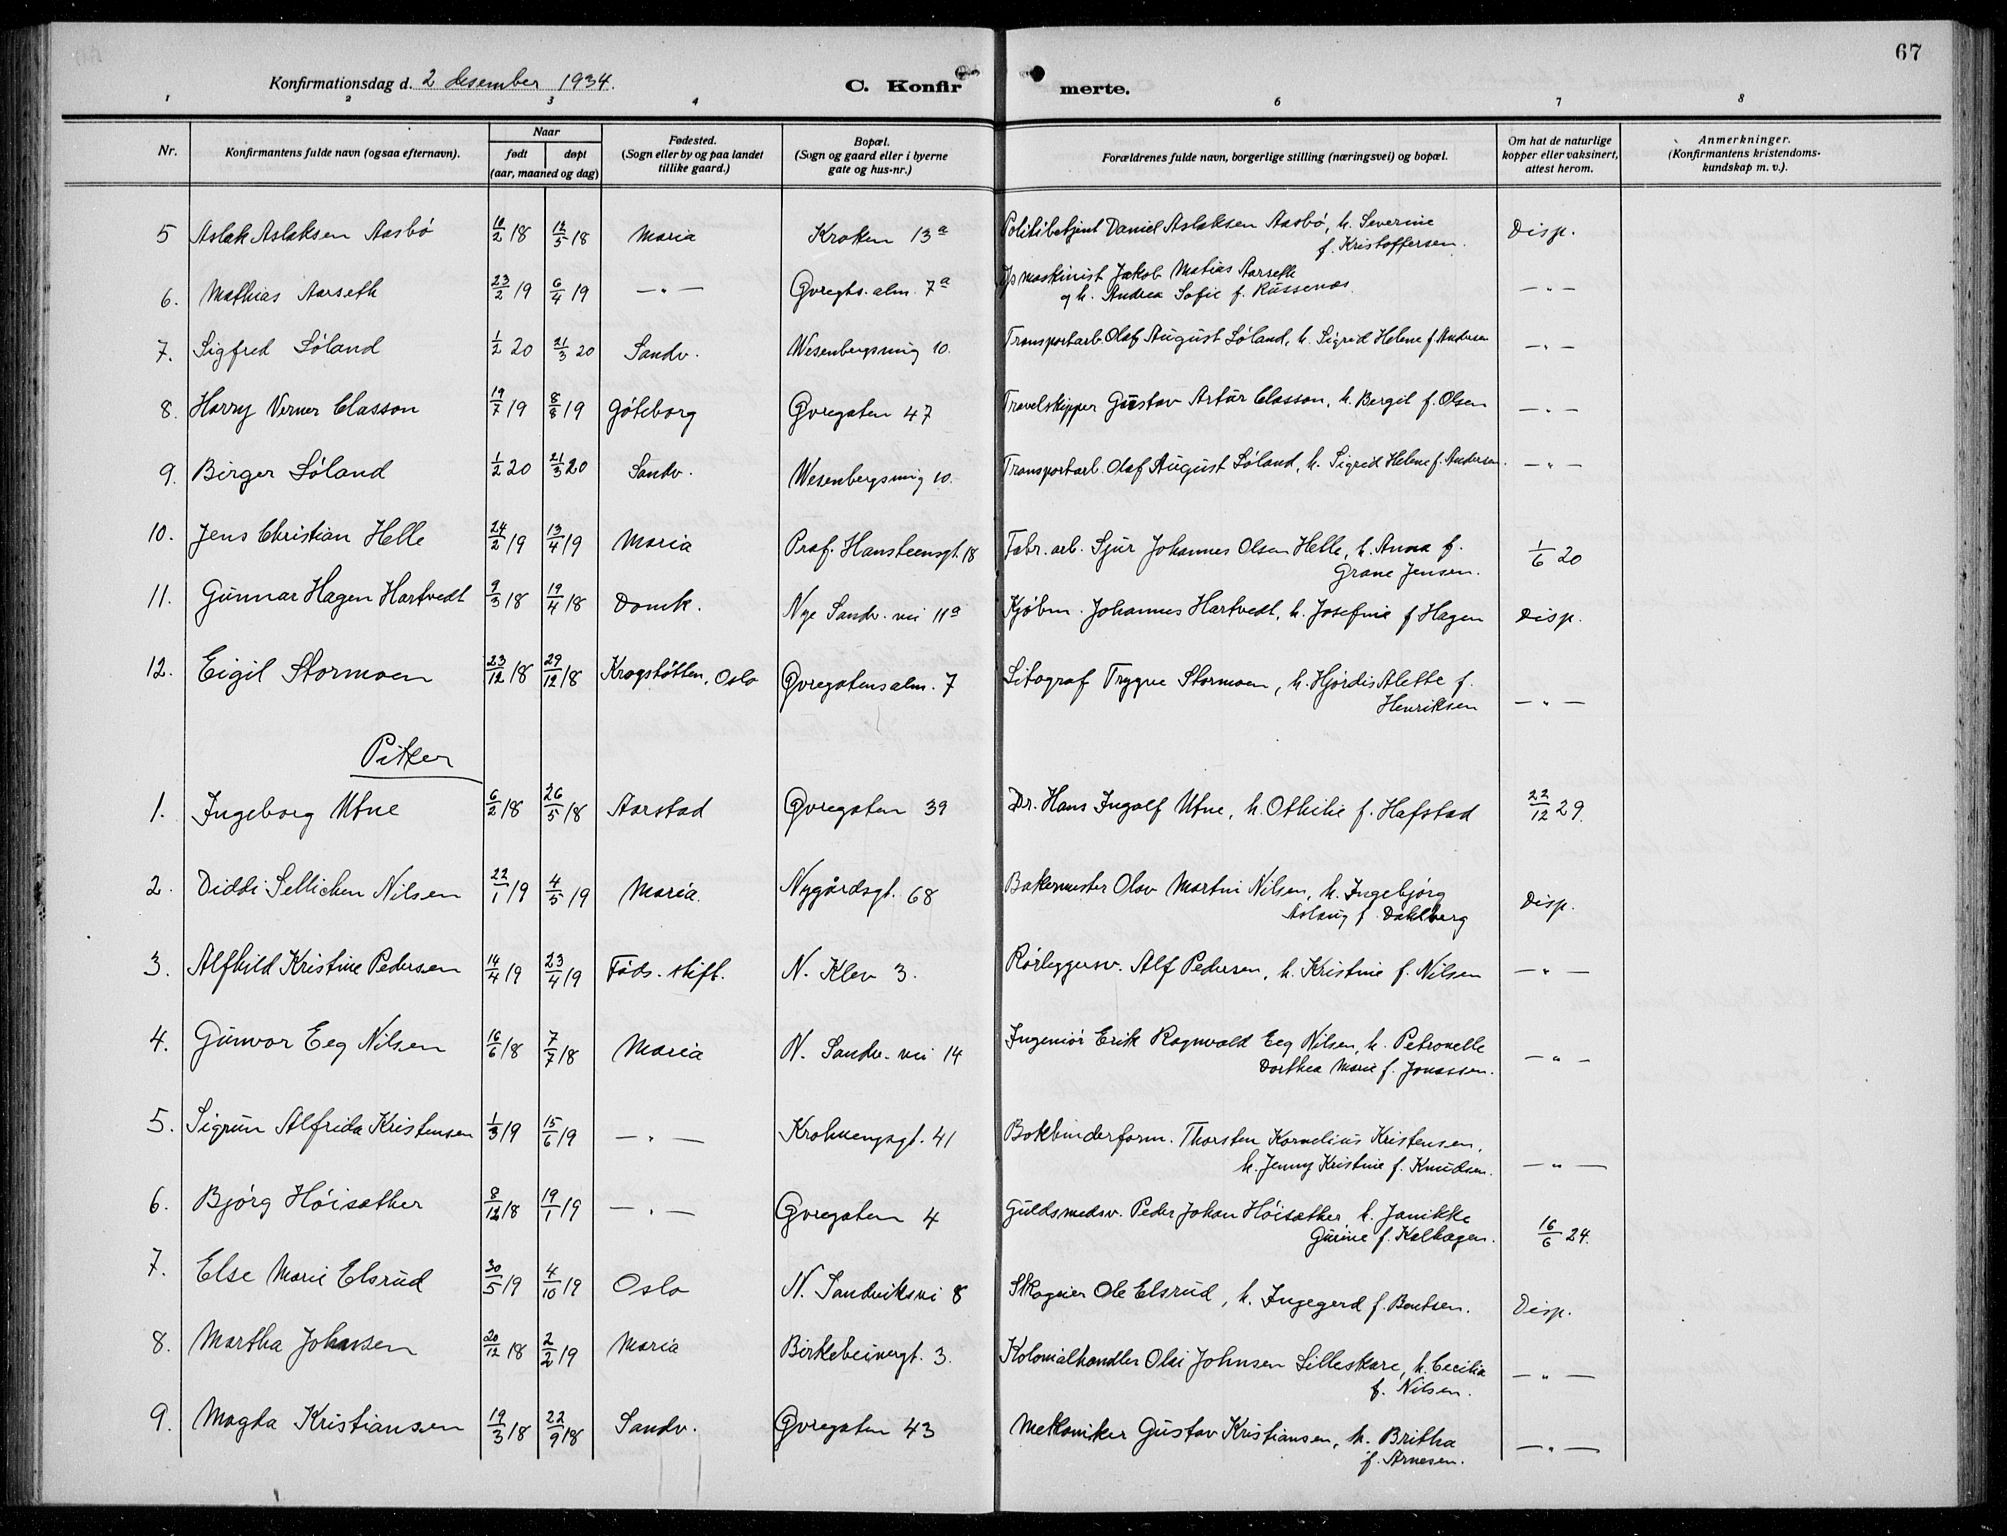 67
Konfirmationsdag d. 2 desember 1934.
C. Konfirmerte.
1 2 3 4 6 7 8
Nr. Konfirmantens fulde navn (ogsaa efternavn). Naar født døpt (aar, maaned og dag) Fødested. (Sogn eller by og paa landet tillike gaard.) Bopæl. (Sogn og gaard eller i byerne gate og hus-nr.) Forældrenes fulde navn, borgerlige stilling (næringsvei) og bopæl. Om hat de naturlige kopper eller vaksinert, attest herom. Anmerkninger. (Konfirmantens kristendoms-kundskap m. v.).
5 Aslak Aslaksen Aasbø 10/2 18 12/5 18 Maria Kroken 13a Politibetjent Daniel Aslaksen Aasbø, h. Severine Disp.
f. Kristoffersen.
6. Mathias Aarseth 23/2 19 6/4 19 — " — Øvregts. alm. 7a maskinist Jakob Matias Aarseth — " —
og h. Andrea Sofie f. Russenes.
7. Sigfred Søland 1/2 20 21/3 20 Sandv. Wesenbergsmug 10. Transportarb. Olaf August Søland, h. Sigrid Helene f. Andersen — " —
8. Harry Verner Classon 19/7 19 8/8 19 Gøteborg Øvregaten 47 Travelskipper Gustav Artur Classon, h. Bergit f. Olsen — " —
9. Birger Søland 1/2 20 21/3 20 Sandv. Wesenbergsmug 10. Transportarb. Olaf August Søland, h. Sigrid Helene f. Andersen. — " —
10. Jens Christian Helle 24/2 19 13/4 19 Maria Prof. Hansteensgt. 18 Fabr. arb. Sjur Johannes Olsen Helle, h. Anna f. 1/6 20
Grane Jensen.
11. Gunnar Hagen Hartvedt 9/3 18 19/4 18 Domk. Nye Sandv. vei 11a Kjøbm. Johannes Hartvedt, h. Josefine f Hagen Disp.
12. Eigil Stormoen 23/12 18 29/12 18 Krogstøtten, Oslo Øvregatensalm. 7 Litograf Trygve Stormoen, h. Hjørdis Alette f.
Henriksen — " —
Piker
1. Ingeborg Utne 6/2 18 26/5 18 Aarstad Øvregaten 39 Dr. Hans Ingolf Utne, h. Othilie f. Hafstad 22/12 29.
2. Diddi Sellichen Nilsen 22/1 19 4/5 19 Maria. Nygårdsgt. 68 Bakermester Olav Martin Nilsen, h. Ingebjørg Disp.
Aslaug f. Dahlberg
3. Alfhild Kristine Pedersen 14/4 19 23/4 19 Føds. stift. N. Klev 3. Rørleggersv. Alf Pedersen, h. Kristine f. Nilsen — " —
4. Gunvor Eeg Nilsen 16/6 18 7/7 18 Maria N. Sandv. vei 14 Ingeniør Erik Ragnvald Eeg Nilsen, h. Petronelle — " —
Dorthea Marie f. Jonassen.
5. Sigrun Alfrida Kristensen 1/3 19 15/6 19 — " — Krohnengsgt. 41 Bokbinderform. Thorsten Kornelius Kristensen,
h. Jenny Kristine f. Knudsen. — " —
6. Bjørg Høisæther 8/12 18 19/1 19 — " — Øvregaten 4 Guldsmedsv. Peder Johan Høisæther, h. Janikke 16/6 24.
Gurine f. Kalhagen.
7. Else Marie Elsrud 30/5 19 4/10 19 Oslo N. Sandviksvei 8 Skogeier Ole Elsrud, h. Ingegerd f. Bentsen. Disp.
8. Martha Johnsen 20/12 18 2/2 19 Maria Birkebeinergt. 3. Kolonialhandler Olai Johnsen Lilleskare, h. Cecilia — " —
f. Nilsen.
9. Magda Kristiansen 19/3 18 22/9 18 Sandv. Øvregaten 43 Mekaniker Gustav Kristiansen, h. Britha — " —
f. Arnesen.